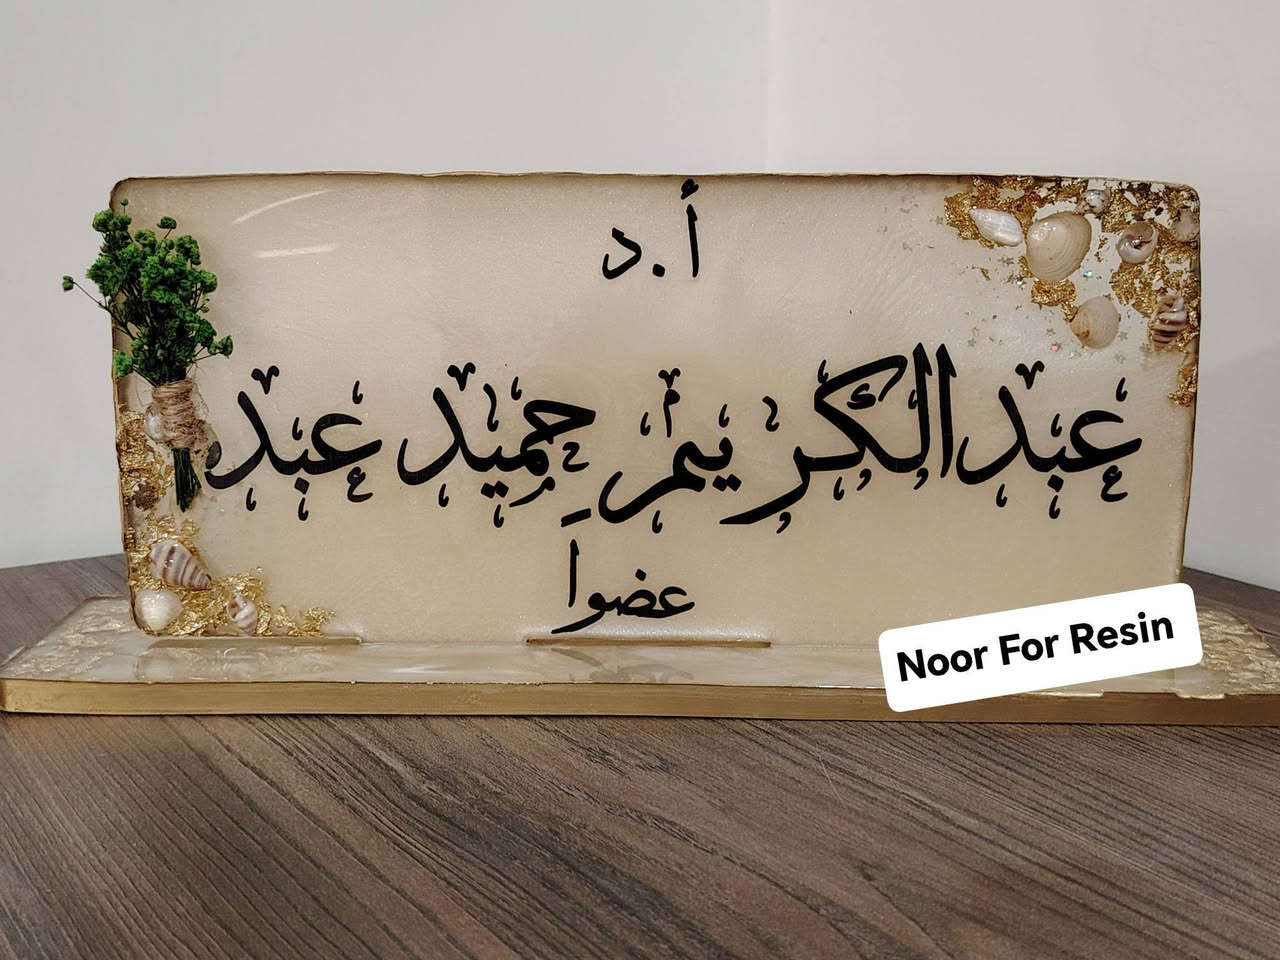 أ.د
عبدالكريم حميد عبد
عضواَ
Noor For Resin